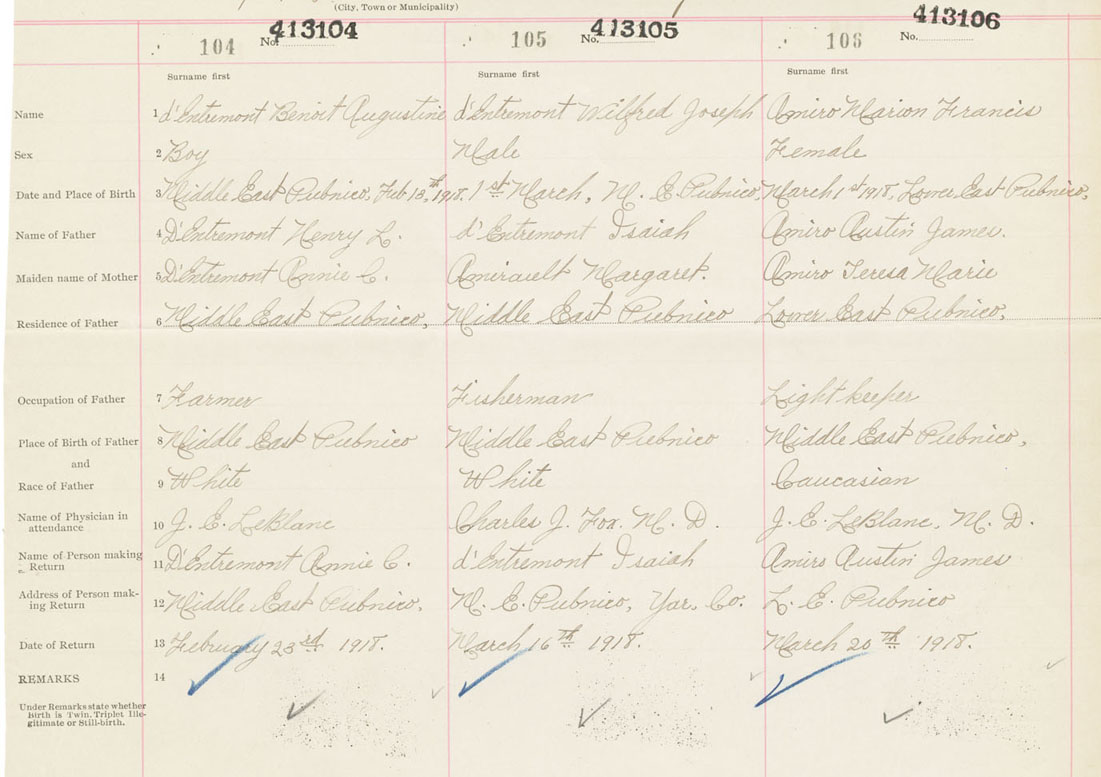 (City, Town or Municipality)
104 No. 413104 105 No. 413105 106 No. 413106
Surname first Surname first Surname first
Name 1 d'Entremont Benoit Augustine d'Entremont Wilfred Joseph Amiro Marion Francis
Sex 2 Boy Male Female
Date and Place of Birth 3 Middle East Pubnico, Feb 18,th 1918. 1st March, M. E Pubnico March 1st 1918, Lower East Pubnico,
Name of Father 4 D'Entremont Henry L. d'Entremont Isaiah Amiro Austin James.
Maiden name of Mother 5 D'Entremont Annie C. Amirault Margaret. Amiro Teresa Marie
Residence of Father 6 Middle East Pubnico, Middle East Pubnico Lower East Pubnico,
Occupation of Father 7 Farmer Fisherman Light keeper
Place of Birth of Father 8 Middle East Pubnico Middle East Pubnico Middle East Pubnico,
and
Race of Father 9 White White Caucasian
Name of Physician in
attendance 10 J. E. LeBlanc Charles J. Fox. M. D. J. E. LeBlanc, M. D.
Name of Person making
Return 11 D'Entremont Annie C. d'Entremont Isaiah Amiro Austin James
Address of Person mak-
ing Return 12 Middle East Pubnico, M. E. Pubnico, Yar. Co. L. E. Pubnico
Date of Return 13 February 23rd 1918. March 16th 1918. March 20th 1918.
REMARKS 14
Under Remarks state whether
Birth is Twin, Triplet Ille-
gitimate or Still-birth.